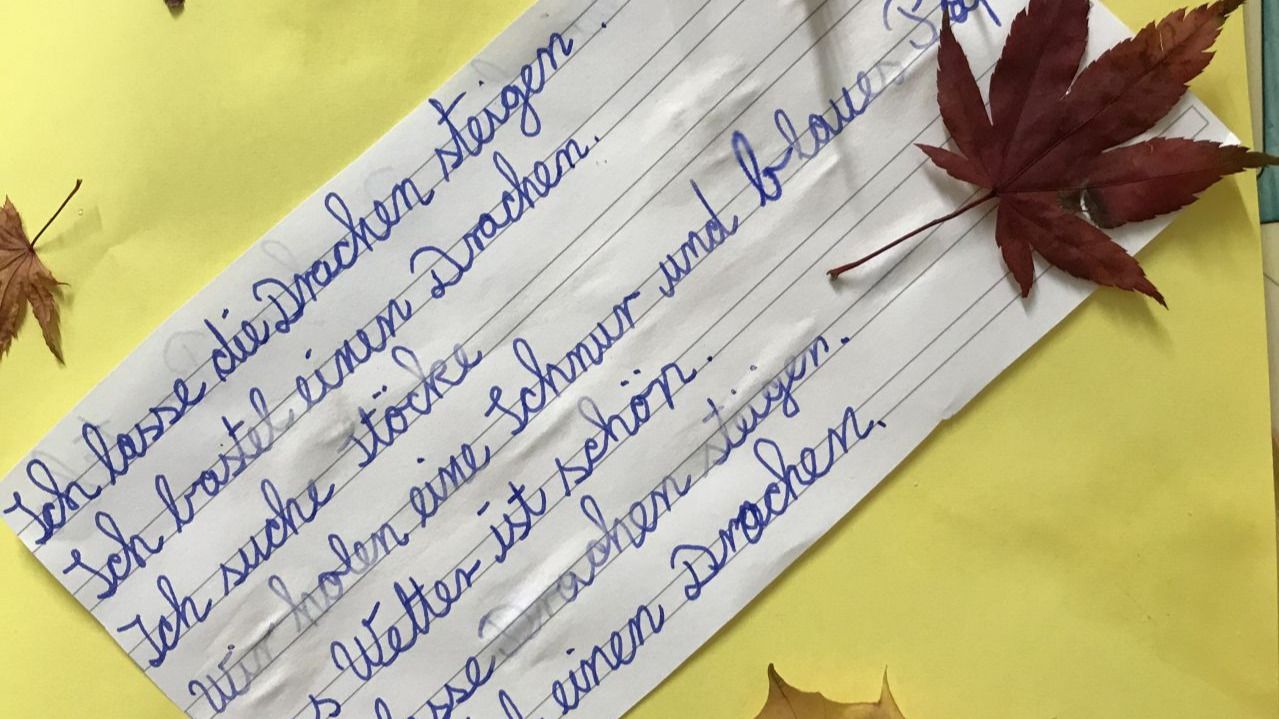 Ich lasse die Drachen steigen.
Ich bastel einen Drachen.
Ich suche Stöcke
Wir holen eine Schnur und blaues
Wetter ist schön.
Drachen steigen.
einen Drachen.